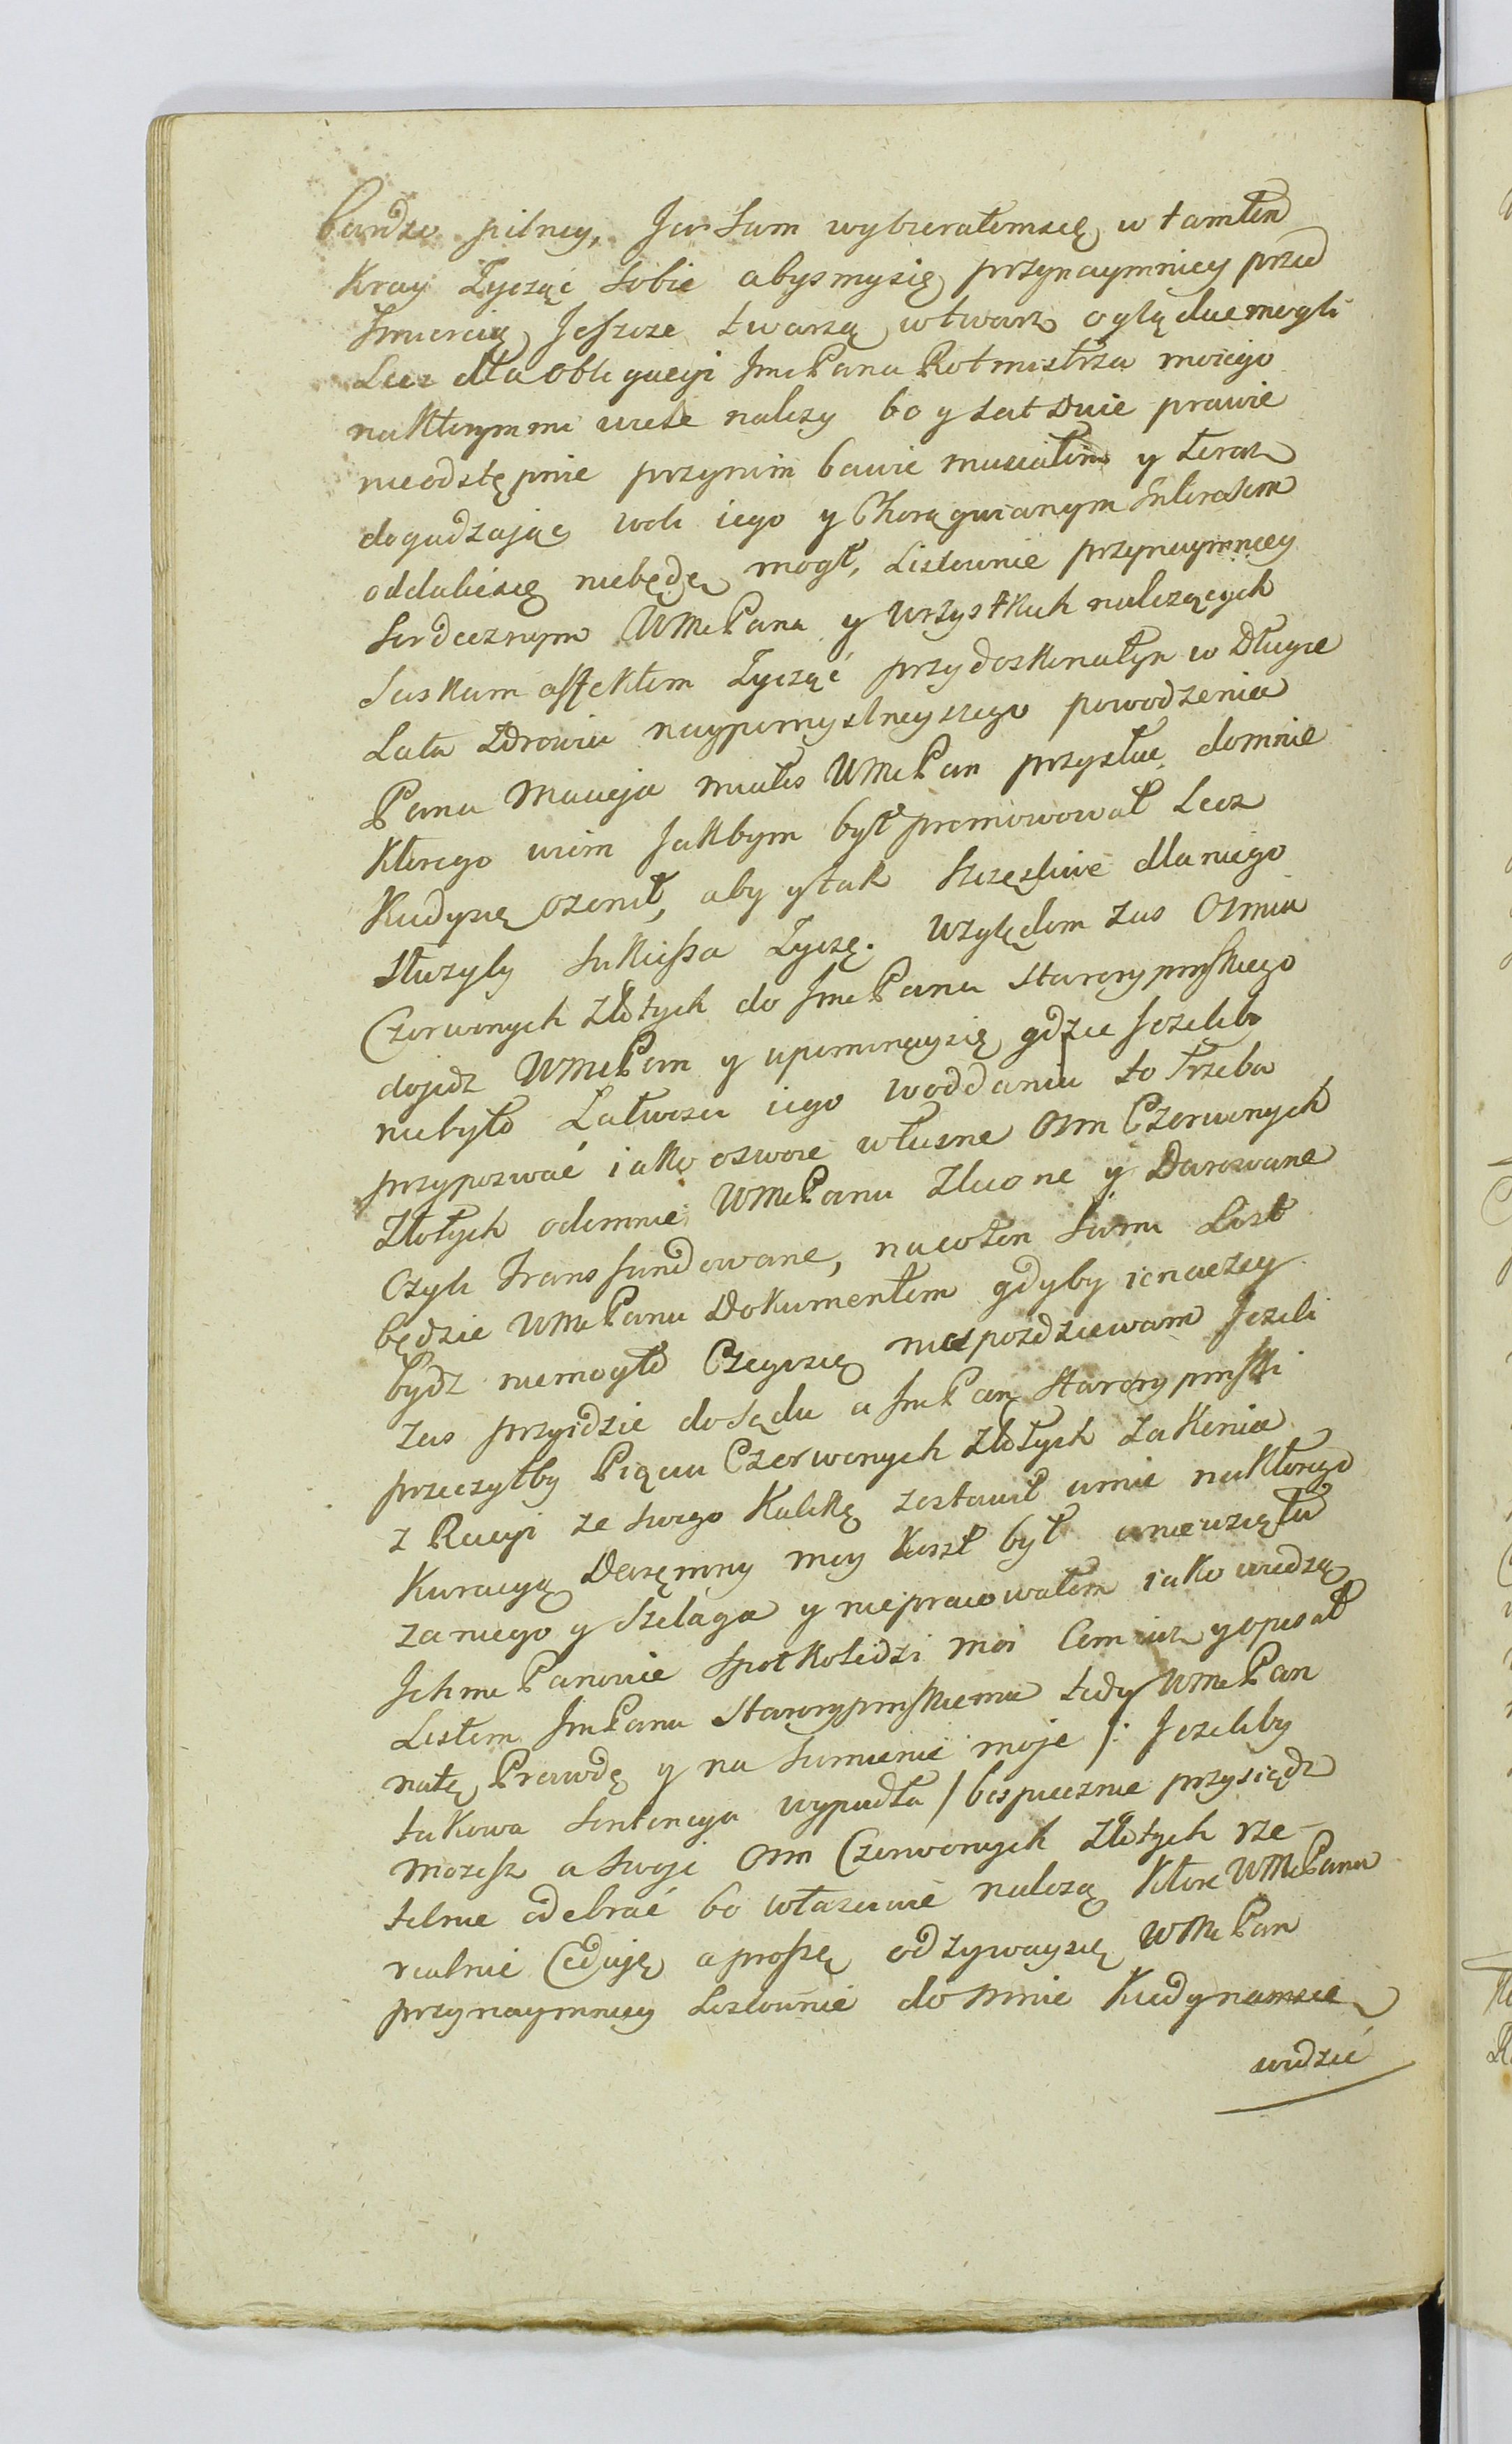 bardzo pilney, Ja Sam wybierałemsię w tamten
Kray Zycząc Sobie abysmysię przynaymniey przed
Smiercią Jeszcze twarzą wtwarz oglądac mogli
Lecz dla obligacyi JmcPana Rotmistrza moiego
naktorym mi wiele nalezy bo y Lat Dwie prawie
nieodstępnie przynim bawic musiałem y teraz
dogadzając woli iego y Chorągwianym Interesom
oddalicsię niebędę mogł, Listownie przynaymniey
Serdecznym WMcPana y wszystkich nalezących
Saskam affektem Zycząć przydoskonałym w Długie
Lata Zdrowiu naypomyslneyszego powodzenia
Pana Macieja miałes WMcPan przysłac domnie
Ktorego wiem Jakbym był promowował Lecz
Kiedysię ozenił, aby ytak Szczęsliwe dlaniego
słuzyły Sukcessa Zyczę. Względem zas Osmiu
Czerwonych Złotych do JmcPana Starorypinskiego
dojedz WMcPan y upominaysię gdzie Jezeliby
niebyło Łatwosci iego woddaniu to Trzeba
przypozwać iako oswoie własne Osm Czerwonych
Złotych odemnie WMcPanu Zlecone y Darowane
Czyli Transfundowane, nacoten Samy List
będzie WMcPanu Dokumentem gdyby inaczey
bydz niemogło Czegosię niespozdziewam Jezeli
zas przyidzie do Sądu a JmcPan Starorypinski
przeczyłby Pięciu Czerwonych Złotych za Konia
z Racyi ze swego Kalikę zostawił umie naktorego
Kuracyą Daremny moy Koszt był aniewziąłem
zaniego y Szeląga y niepracowałem iako wiedzą
IchmcPanowie Społkoledzi moi Com iuz yopisał
Listem JmcPanu Starorypinskiemu tedy WMcPan
natę Prawdę y na Sumienie moje /: Jezeliby
takowa Sentencya wypadła / bespiecznie przysiądz
mozesz a swoje Osm Czerwonych Złotych rze-
telnie odebrać bo własciwie nalezą Ktore WMcPanu
realnie Ceduję a proszę odzywaysię WMcPan
przynaymniey Listownie do mnie Kiedynamsię
widzić